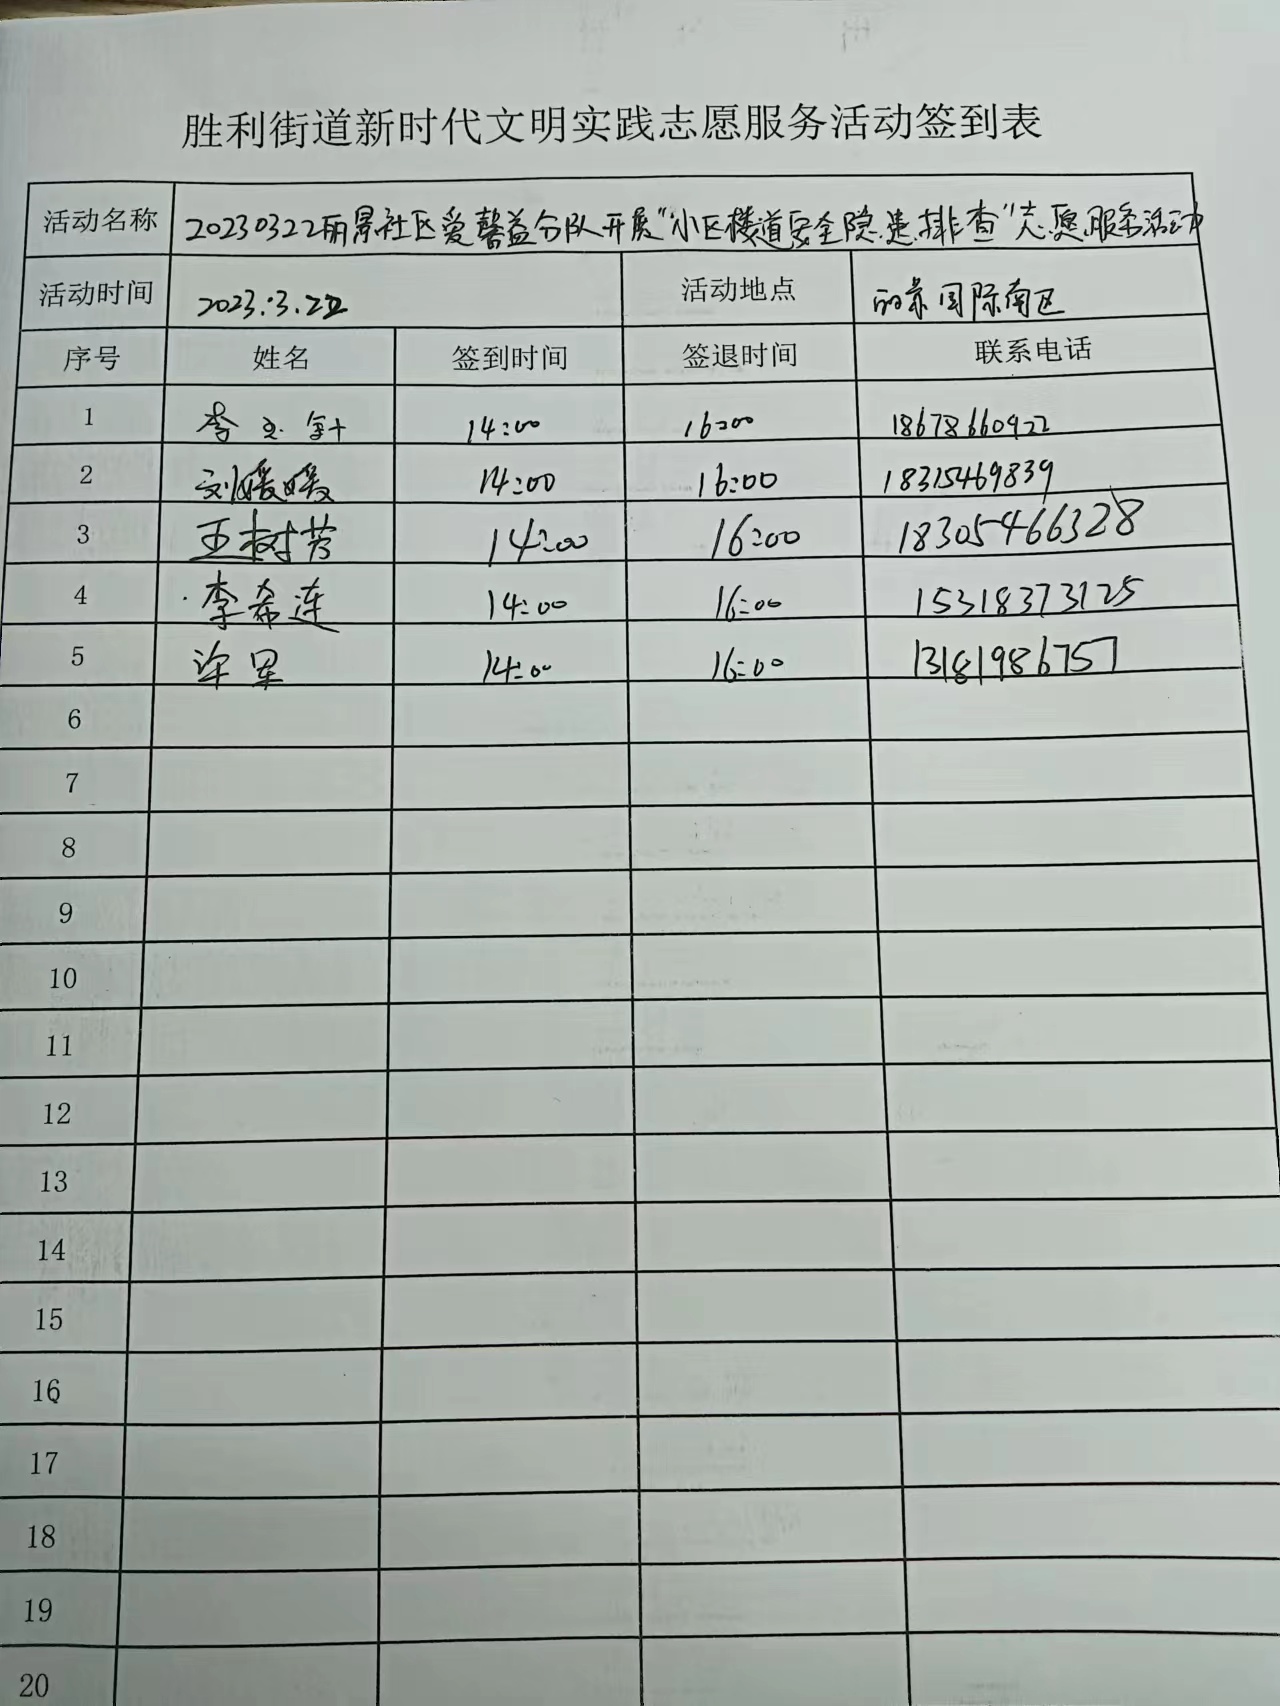 胜利街道新时代文明实践志愿服务活动签到表
活动名称 20230322丽景社区爱馨益分队开展"小区楼道安全隐患排查"志愿服务活动
活动时间 2023.3.22 活动地点 丽景国际南区
序号 姓名 签到时间 签退时间 联系电话
1 李玉针 14:00 16:00 18678660922
2 刘媛媛 14:00 16:00 18315469839
3 王树芳 14:00 16:00 18305466328
4 李希连 14:00 16:00 15318373125
5 许军 14:00 16:00 13181986757
6
7
8
9
10
11
12
13
14
15
16
17
18
19
20